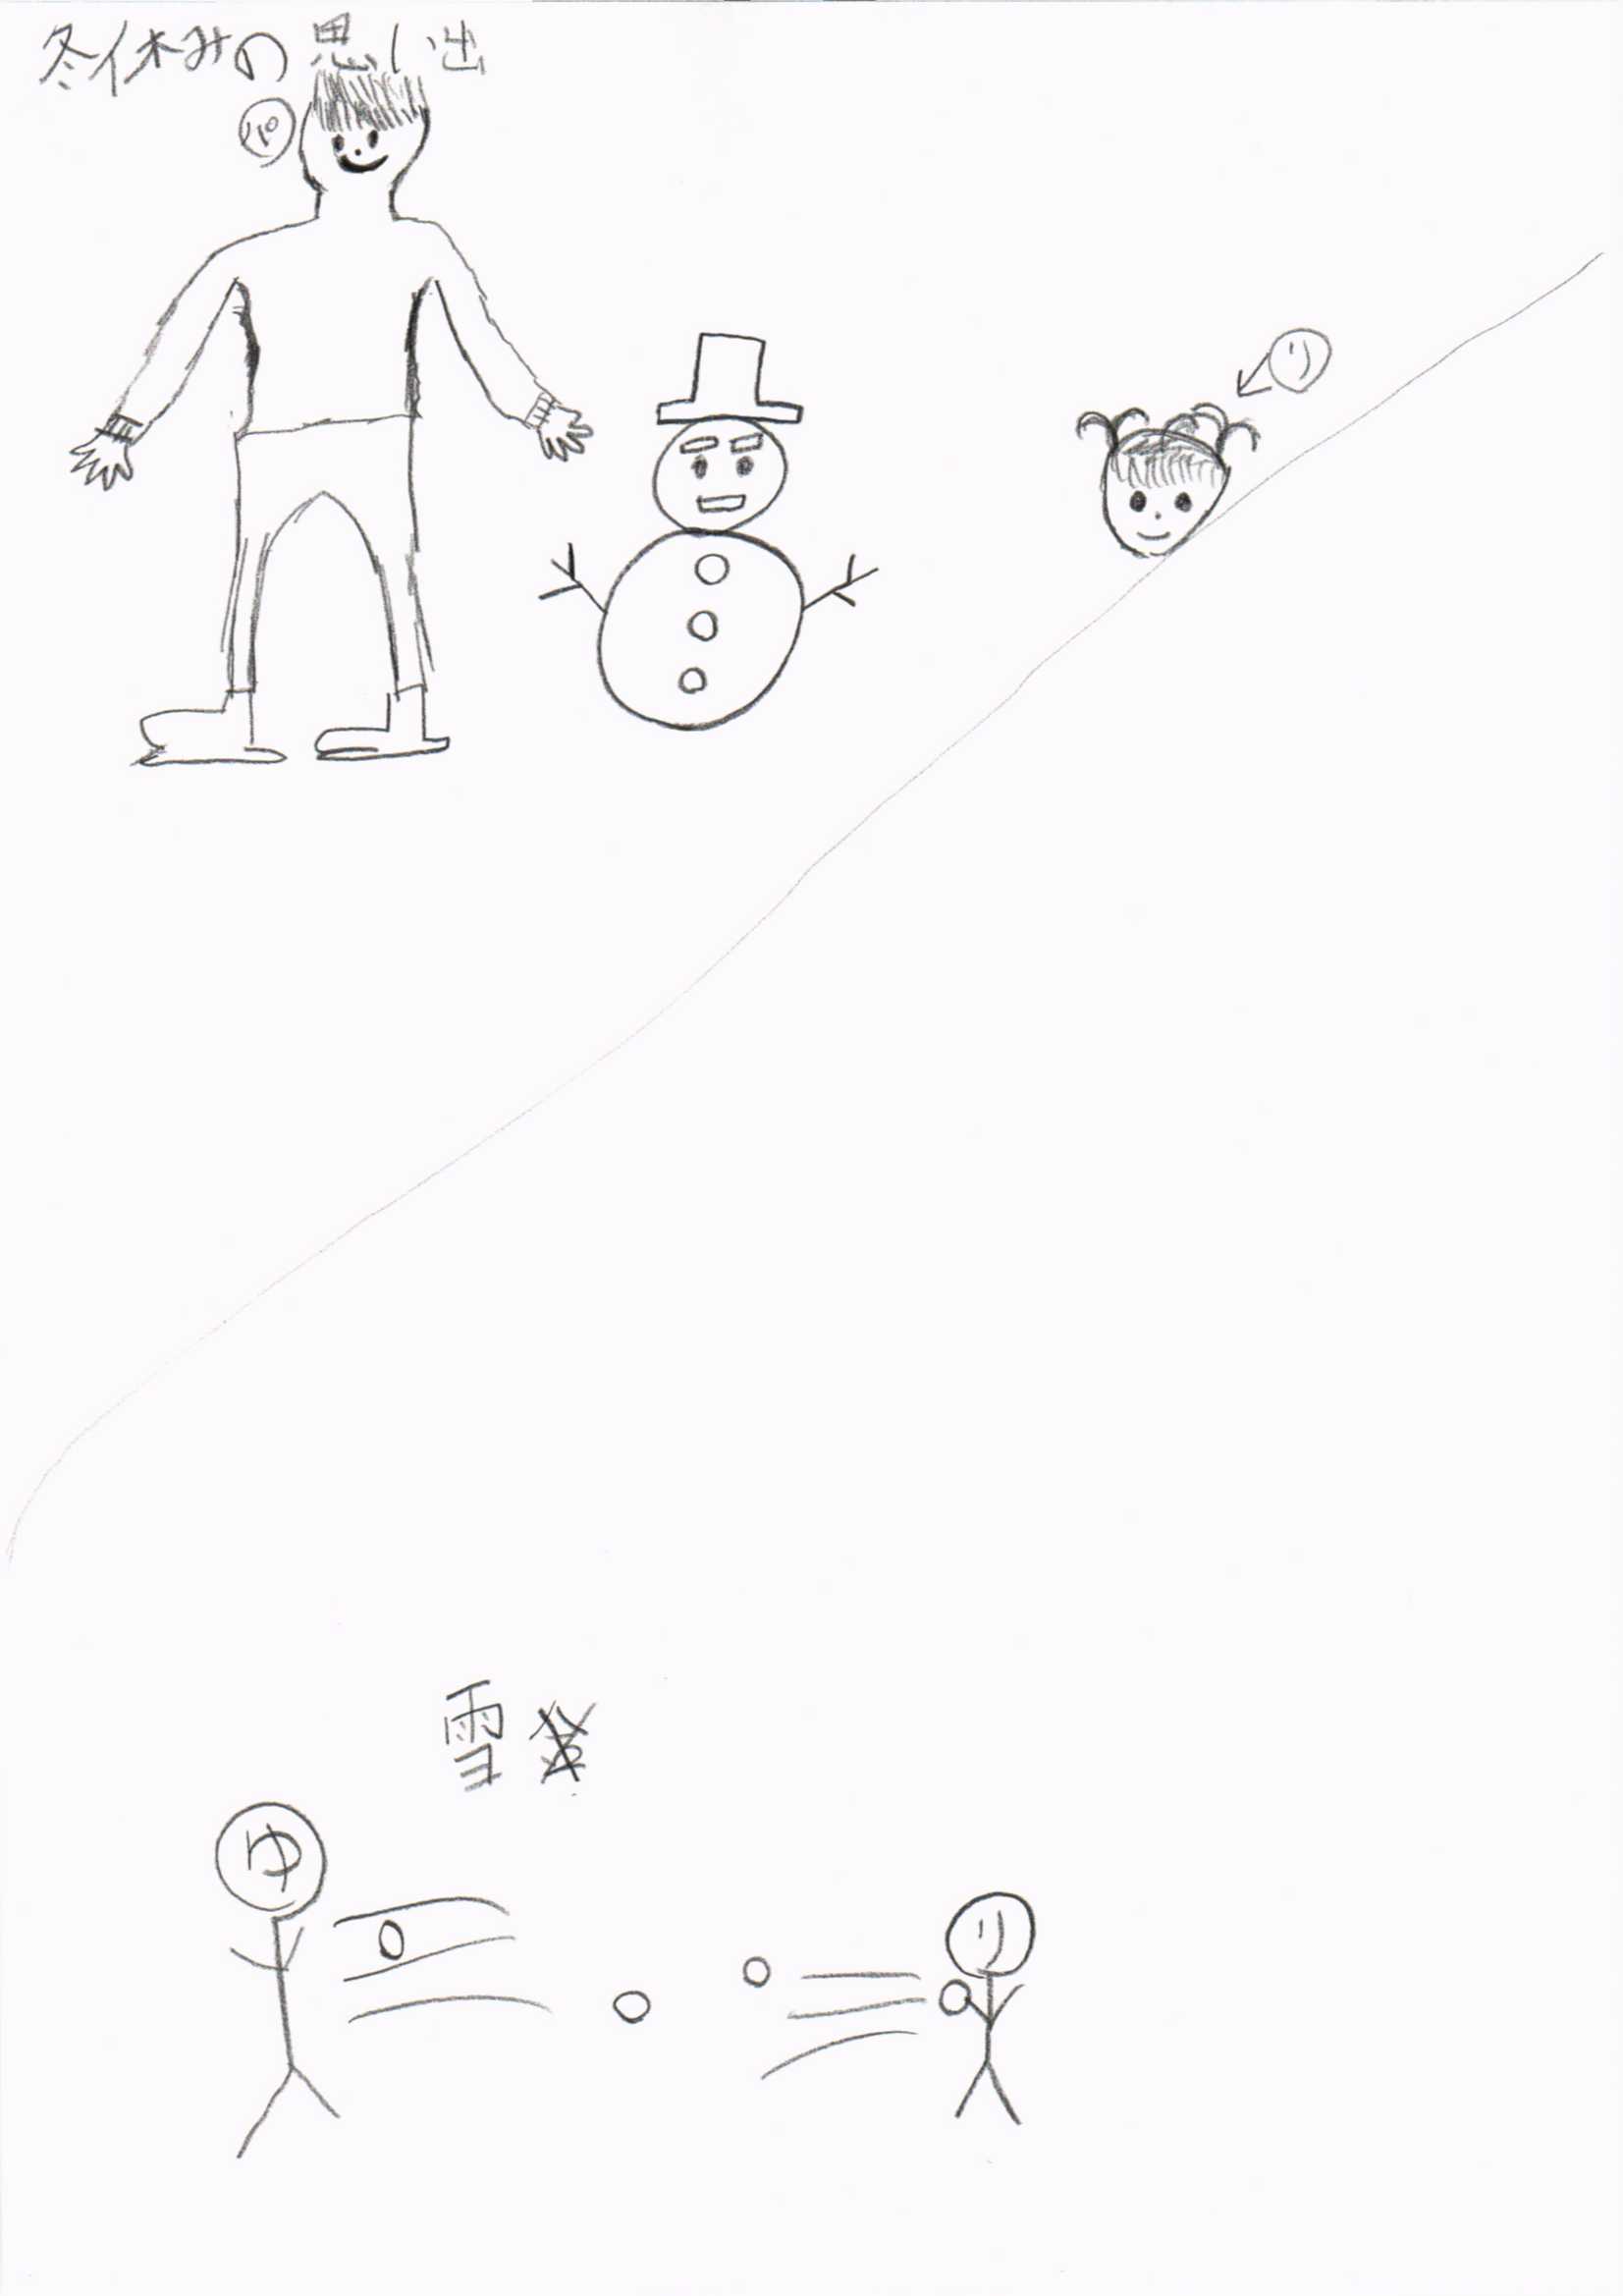 冬休みの思い出
パ
り
雪
ゆ
り